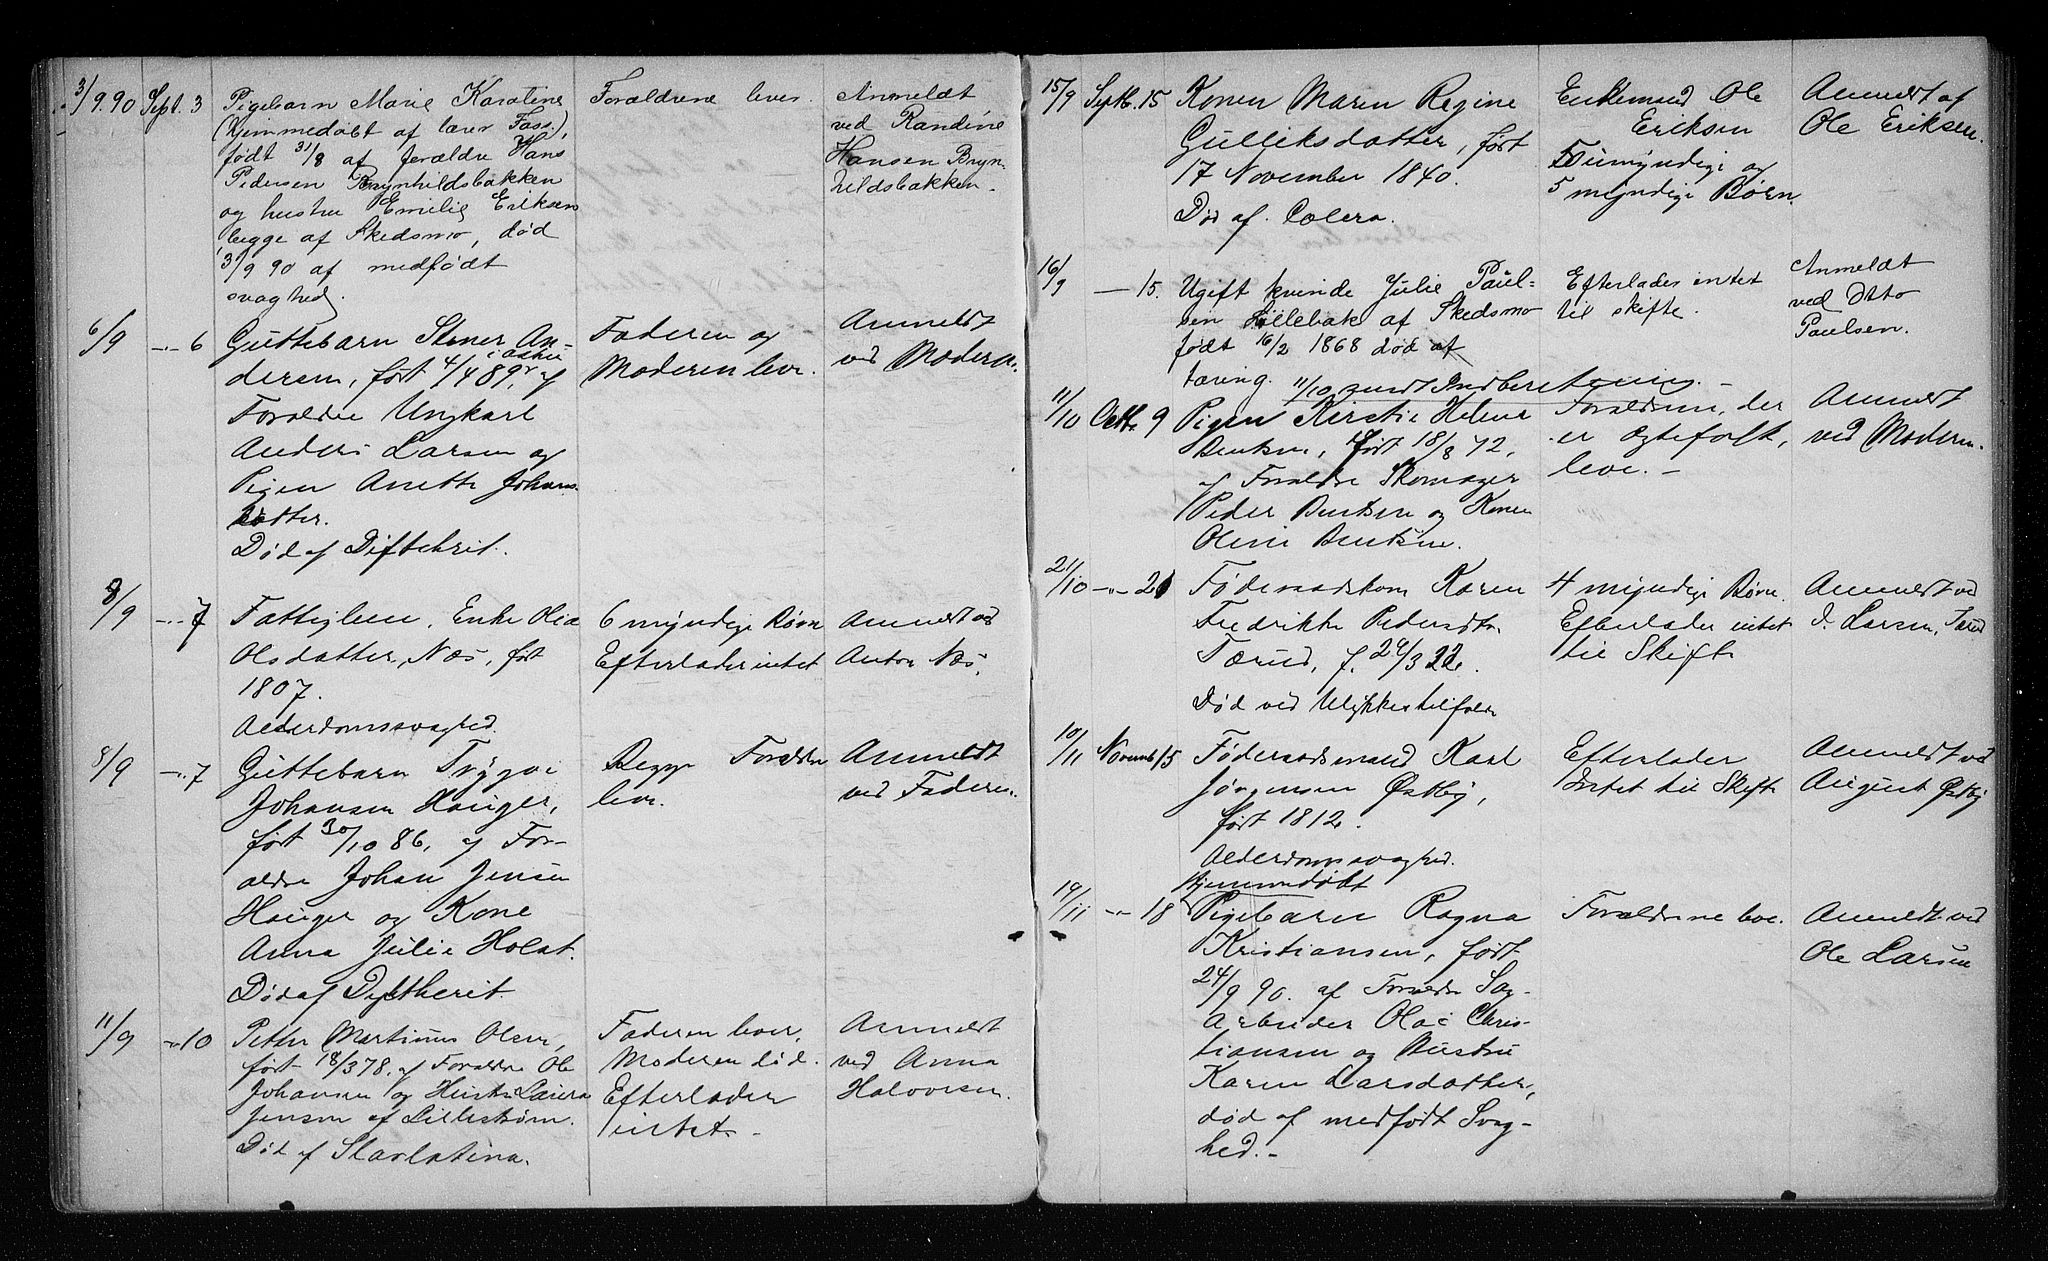 3/9.90 Sept. 3 Pigebarn Marie Karoline Forældrene lever. Anmeldt
(hjemmedøbt af lærer Foss), ved Randine
født 31/8 af forældre Hans Hansen Bryn-
Pedersen Brynhildsbakken hildsbakken.
og hustru Emilie Eriksen
begge af Skedsmo, død
3/9 90 af medfødt
svaghed.
6/9 -"- 6 Guttebarn Stener An- Faderen og Anmeldt
dersen, født 4/4 89, af Moderen lever. ved Moderen.
Forældre Ungkarl
Anders Larsen og
Pigen Anette Johans-
datter.
Død af Diftehrit.
8/9 -"- 7 Fattiglem, Enke Olea 6 myndige Børn Anmeldt ved
Olsdatter, Næs, født Efterlader intet Anton Næs,
1807.
Alderdomssvaghed.
8/9 -"- 7 Guttebarn Trygve Begge Forældre Anmeldt
Johansen Hauger, lever. ved Faderen.
født 30/10 86, af For-
ældre Johan Jensen
Hauger og Kone
Anna Julie Holst.
Død af Dyftherit.
11/9 -"- 10 Petter Martinus Olsen, Faderen lever, Anmeldt
født 18/3 78. af Forældre Ole Moderen død. ved Anna
Johansen og Hustru Laura Efterlader Halvorsen.
Jensen af Lillestrøm. intet -
Død af Skarlatina.
15/9 Septb. 15 Konen Maren Regine Enkemand Ole Anmeldt af
Gulliksdatter, født Eriksen Ole Eriksen.
17 November 1840. umyndige og
Død af Colera. 5 myndige Børn
16/9 — 15. Ugift kvinde Julie Paul- Efterlades intet Anmeldt
sen Lillebak af Skedsmo til skifte. ved Otto
født 16/2 1868 død af Paulsen.
tæring. 11/10 sendt Indberetning. -
11/10 Octb. 9 Pigen Kirstie Helene Forældrene, der Anmeldt
Bentsen, født 18/8 72, er Ægtefolk, ved Moderen.
af Forældre Skomager leve. -
Peder Bentsen og Konen
Oline Bentsen.
21/10 -"- 21 Føderaadskone Karen 4 myndige Børn. Anmeldt ved
Fredrikke Pedersdtr. Efterlader intet J. Larsen, Tærud
Tærud, f. 24/3 22. til Skifte
Død ved Ulykkestilfælde
10/11 Novemb 5 Føderaadsmand Karl Efterlader Anmeldt ved
Jørgensen Østby, Intet til Skifte August Østby
født 1812.
Alderdomssvaghed.
hjemmedøbt
19/11 -"- 18 Pigebarn Ragna Forældrene leve. Anmeldt ved
Kristiansen, født Ole Larsen
24/9 90. af Forældre Sag-
arbeider Olai Chris-
tiansen og Hustru
Karen Larsdatter,
død af medfødt Svag-
hed. -